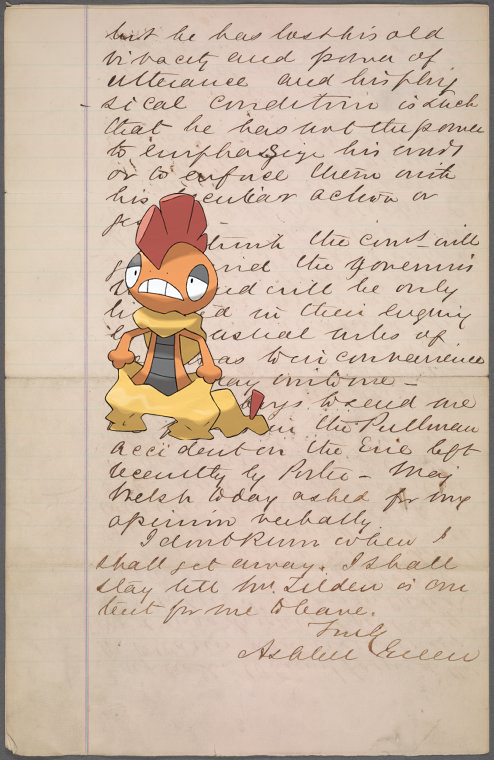 but he has lost his old
vivacity and power of
utterance and his phy
sical condition is such
that he has not the power
to emphasize his words
or to enforce them with
his peculiar action or
think the court will
and the Governor's
and will be only
in their enquiry
usual rules of
was to inconvenience
day
boys to send me
in the Pullman
accident on the Erie left
recently by Porter - May
Welsh today asked for my
opinion verbally
I dont know when I
shall get away. I shall
stay till Mr. Tilden is con
tent for me to leave.
Truly
Ashbel Green